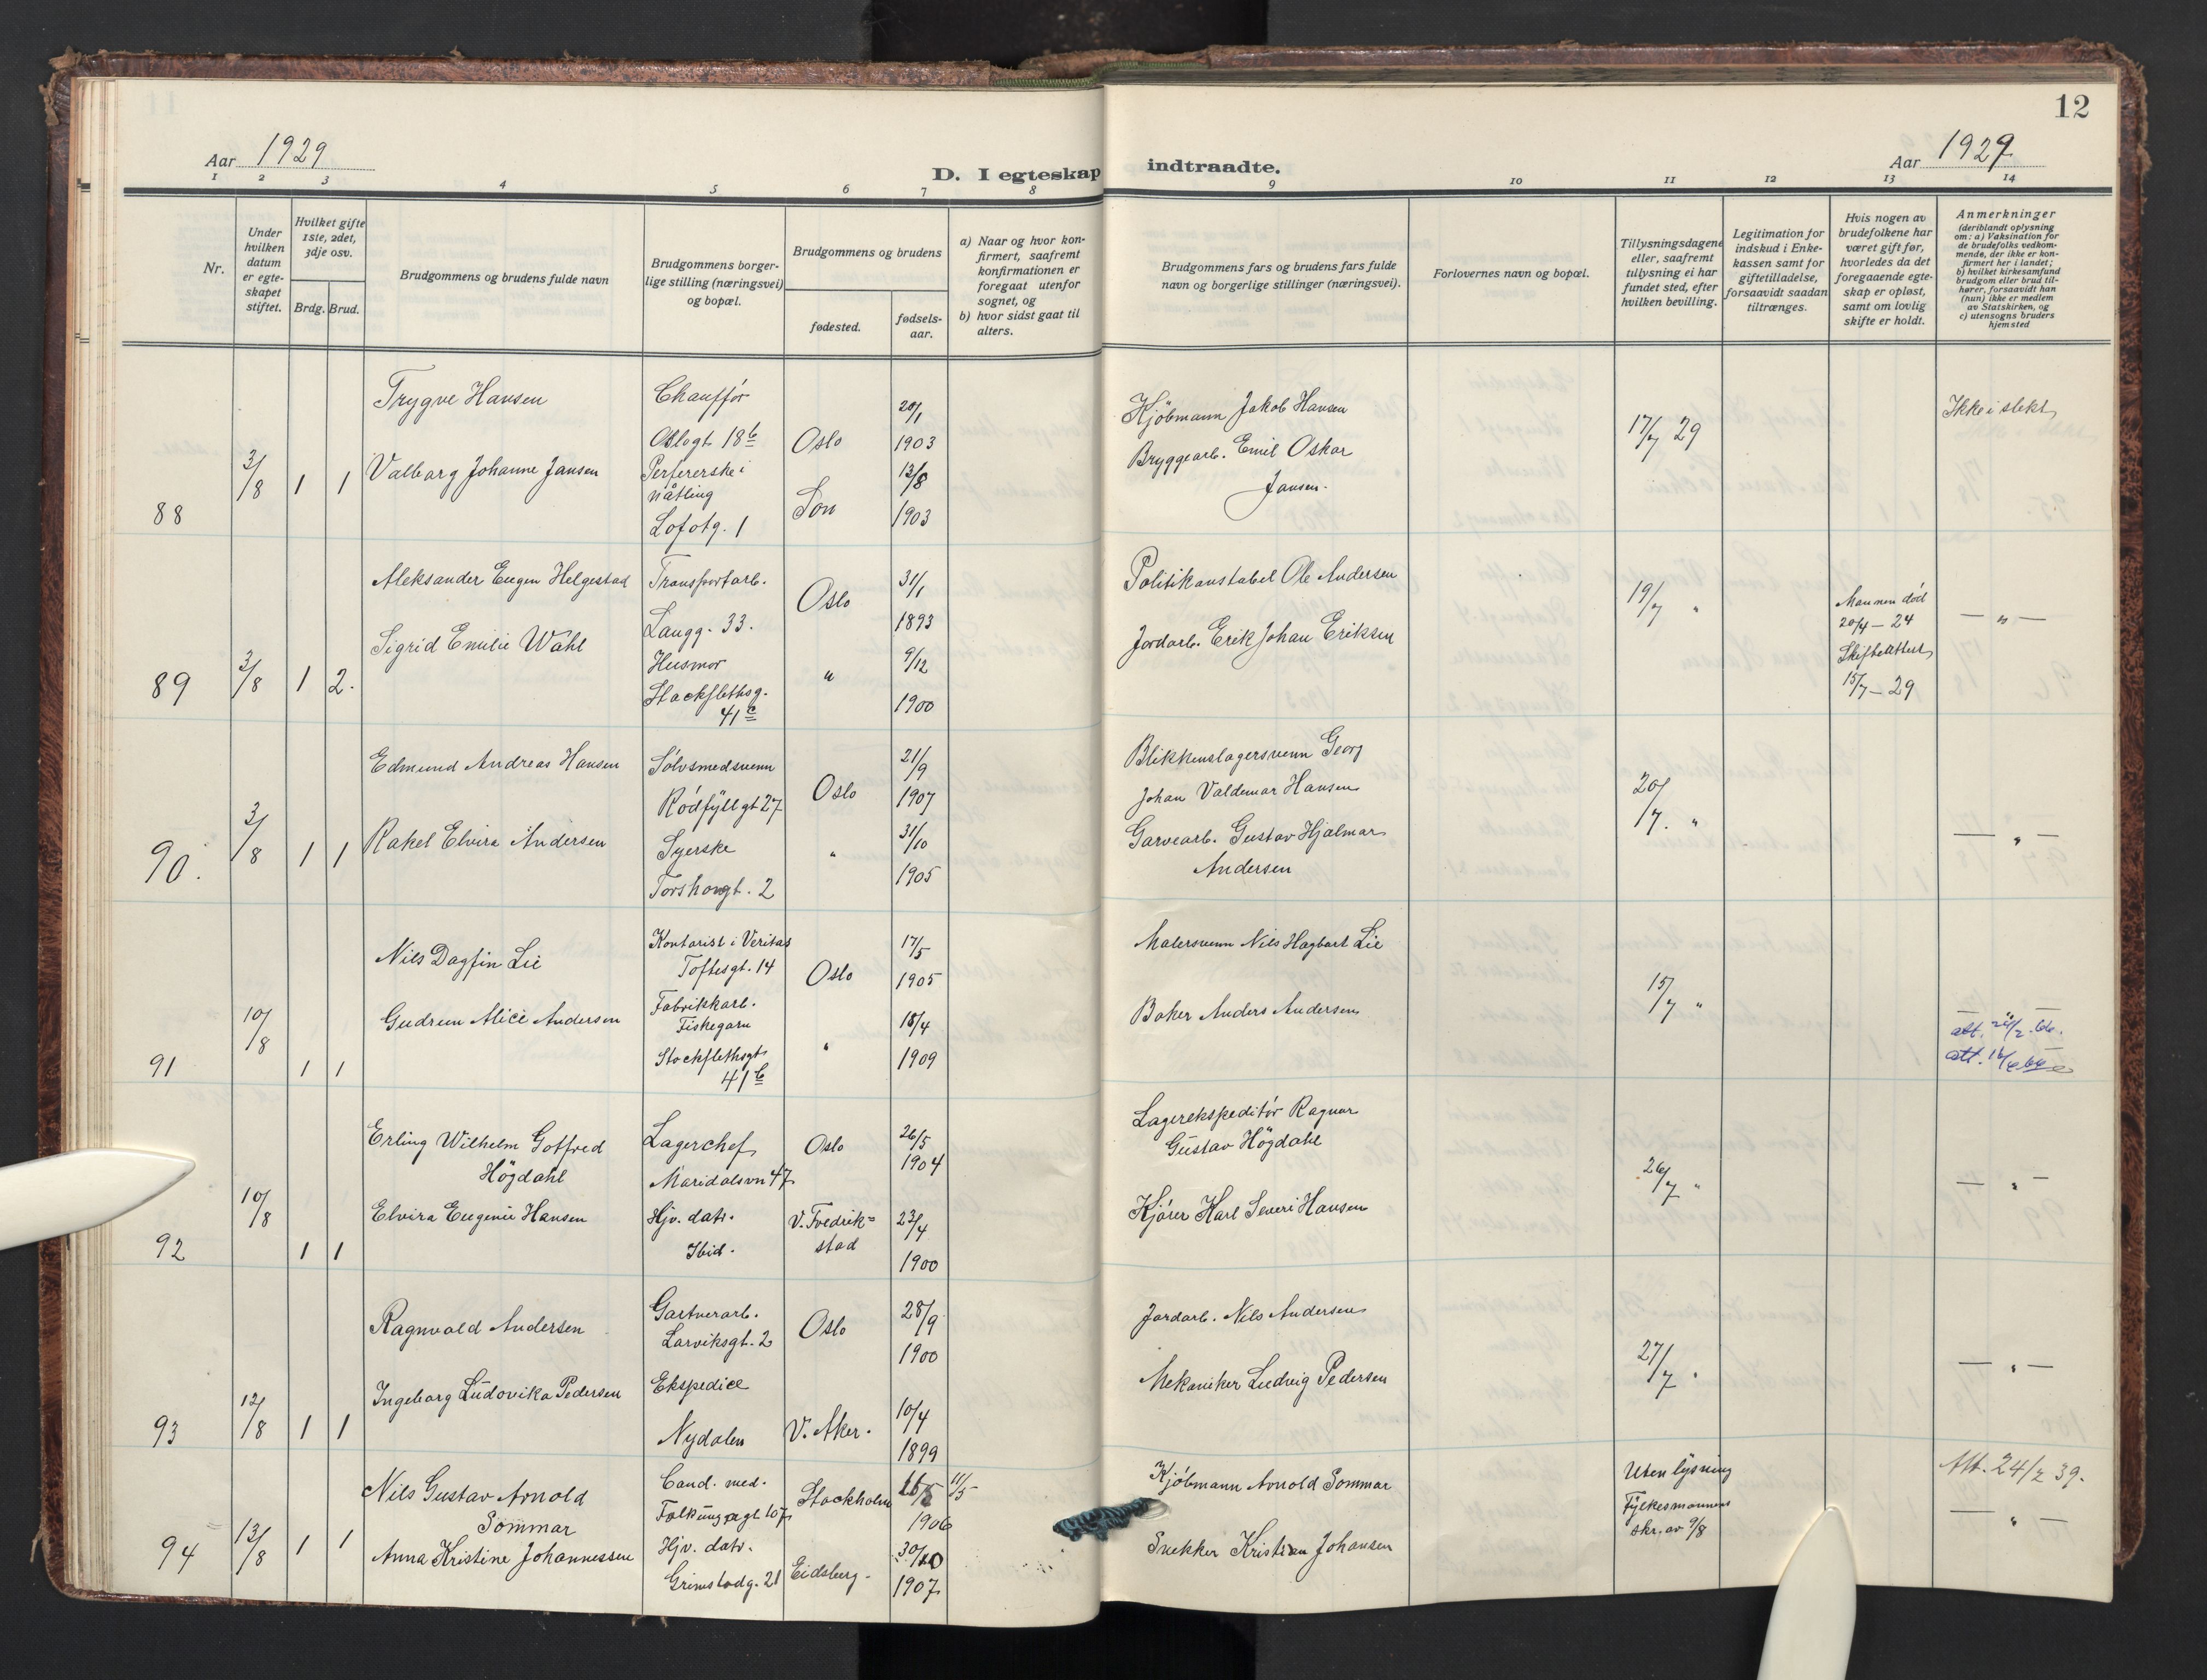 12
Aar 1929
D. I egteskap indtraadte.
Aar 1929
1 2 3 4 5 6 7 8 9 10 11 12 13 14
Nr.
Under
hvilken
datum
er egte-
skapet
stiftet.
Hvilket gifte
1ste, 2det,
3dje osv.
Brdg. Brud.
Brudgommens og brudens fulde navn
Brudgommens borger-
lige stilling (næringsvei)
og bopæl.
Brudgommens og brudens
fødested.
fødsels-
aar.
a) Naar og hvor kon-
firmert, saafremt
konfirmationen er
foregaat utenfor
sognet, og
b) hvor sidst gaat til
alters.
Brudgommens fars og brudens fars fulde
navn og borgerlige stillinger (næringsvei).
Forlovernes navn og bopæl.
Tillysningsdagene
eller, saafremt
tillysning ei har
fundet sted, efter
hvilken bevilling.
Legitimation for
indskud i Enke-
kassen samt for
giftetilladelse,
forsaavidt saadan
tiltrænges.
Hvis nogen av
brudefolkene har
været gift før,
hvorledes da det
foregaaende egte-
skap er opløst,
samt om lovlig
skifte er holdt.
Anmerkninger
(deriblandt oplysning
om: a) Vaksination for
de brudefolks vedkom-
mende, der ikke er kon-
firmert her i landet;
b) hvilket kirkesamfund
brudgom eller brud til-
hører, forsaavidt han
(hun) ikke er medlem
av Statskirken, og
c) utensogns bruders
hjemsted
88
3/8
1 1
Trygve Hansen
Valborg Johanne Jansen
Chauffør
Oslogt 18b
nåtling
Lofotg. 1
Oslo
Son
20/1
1903
13/8
1903
Kjöbmann Jakob Hansen
Bryggearb. Emil Oskar
Jansen.
17/7 29
Ikke i slekt
89
3/8
1 2.
Aleksander Eugen Helgestad
Sigrid Emilie Wahl
Transportarb.
Langg. 33.
Husmor
Stockflethsg.
41c
Oslo
"
31/1
1893
9/12
1900
Politikonstabel Ole Andersen
Jordarb. Erik Johan Eriksen
19/7 "
Mannen död
20/4 – 24
Skifteattest
15/7 – 29
— " —
90.
3/8
1 1
Edmund Andreas Hansen
Rakel Elvira Andersen
Sölvsmedsvenn
Rödfyllgt 27
Syerske
Torshovgt. 2
Oslo
"
21/9
1907
31/10
1905
Blikkenslagersvenn Georg
Johan Valdemar Hansen
Garvearb. Gustav Hjalmar
Andersen
20/7. "
— " —
91
10/8
1 1
Nils Dagfin Lie
Gudrun Alice Andersen
Kontorist i Veritas
Toftesgt. 14
Fabrikkarb.
Fiskegarn
Stockflethsgt
41b
Oslo
"
17/5
1905
18/4
1909
Malersvenn Nils Hagbart Lie
Baker Anders Andersen
15/7 "
— " —
92
10/8
1 1
Erling Wilhelm Gotfred
Högdahl
Elvira Eugenie Hansen
Lagerchef
Maridalsvn 47
Hjv. datr.
Ibid.
Oslo
V. Fredrik-
stad
26/5
1904
23/4
1900
Lagerekspeditör Ragnar
Gustav Högdahl
Kjörer Karl Severi Hansen
26/7 "
— " —
93
12/8
1 1
Ragnvald Andersen
Ingeborg Ludovika Pedersen
Gartnerarb.
Larviksgt. 2
Ekspedice
Nydalen
Oslo
V. Aker.
28/9
1900
10/4
1899
Jordarb. Nils Andersen
Mekaniker Ludvig Pedersen
27/7 "
— " —
94
13/8
1 1
Nils Gustav Arnold
Sommar
Anna Kristine Johannessen
Cand. med.
Hjv. datr.
Grimstadg. 21
Stockholm
Eidsberg.
11/5
1906
30/10
1907
Kjöbmann Arnold Sommar
Snekker Kristian Johansen
Uten lysning
Fylkesmannens
skr. av 9/8
Att. 24/2 39.
— " —